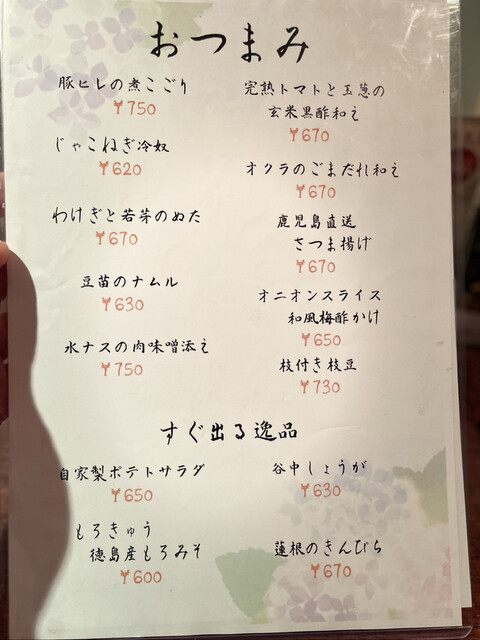 おつまみ
豚ヒレの煮こごり
¥750
じゃこねぎ冷奴
¥620
わけぎと若芽のぬた
¥670
豆苗のナムル
¥630
水ナスの肉味噌添え
¥750
完熟トマトと玉葱の
玄米黒酢和え
¥670
オクラのごまだれ和え
¥670
鹿児島直送
さつま揚げ
¥670
オニオンスライス
和風梅酢かけ
¥650
枝付き枝豆
¥730
すぐ出る逸品
自家製ポテトサラダ
¥650
もろきゅう
徳島産もろみそ
¥600
谷中しょうが
¥630
蓮根のきんぴら
¥670